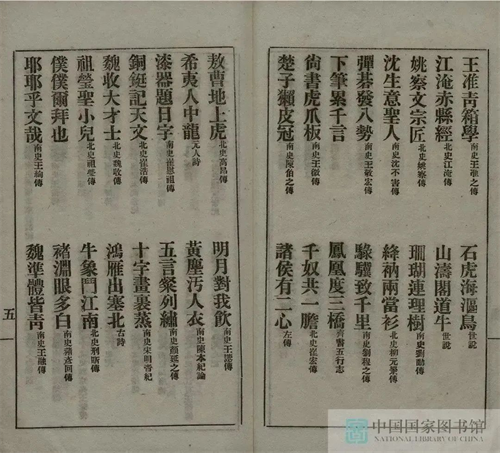 王准青箱學南史王准之傳
石虎海漚鳥世說
江淹赤縣經北史江淹傳
山濤閣道牛世說
姚察文宗匠北史姚察傳
珊瑚連理樹南史劉勔傳
沈生意聖人南史沈不害傳
絳衲兩當衫北史柳元景傳
彈碁發八勢南史王敬宏傳
騄驥致千里南史劉穆之傳
下筆累千言
鳳凰度三橋南齊五行志
尙書虎爪板南史王微傳
千奴共一膽北史崔宏傳
楚子獺皮冠南史陳伯之傳
諸侯有二心左傳
敖曹地上虎北史高昂傳
明月對我飲南史王譓傳
希夷人中龍元人詩
黃塵汚人衣南史陳本紀論
漆器題日字南史崔恩祖傳
五言粲列繡南史顏延之傳
銅鋌記天文北史崔浩傳
十字畫裹蒸南史宋明帝紀
魏收大才士北史魏收傳
鴻雁出塞北古詩
祖瑩聖小兒北史祖瑩傳
牛象鬥江南北史刑昕傳
僕僕爾拜也
褚淵眼多白南史褚彥回傳
耶耶乎文哉南史王絢傳
魏準體皆靑南史王融傳
五
中国国家图书馆
NATIONAL LIBRARY OF CHINA